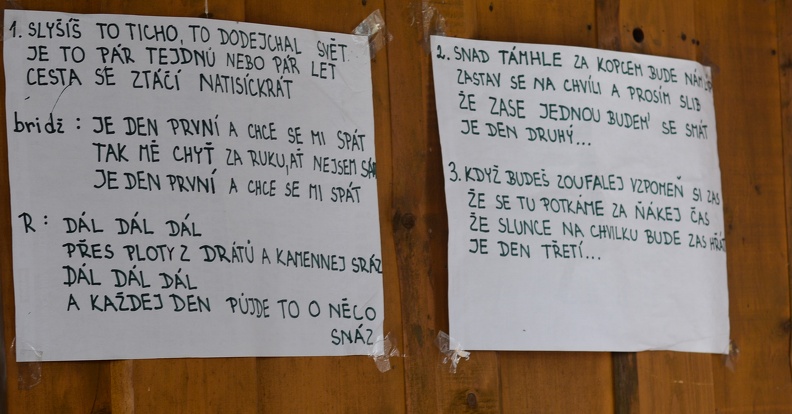 1. SLYŠÍŠ TO TICHO, TO DODEJCHAL SVĚT
JE TO PÁR TEJDNŮ NEBO PÁR LET
CESTA SE ZTÁČÍ NATISÍCKRÁT
bridž: JE DEN PRVNÍ A CHCE SE MI SPÁT
TAK MĚ CHYŤ ZA RUKU, AŤ NEJSEM SÁM
JE DEN PRVNÍ A CHCE SE MI SPÁT
R: DÁL DÁL DÁL
PŘES PLOTY Z DRÁTŮ A KAMENNEJ SRÁZ
DÁL DÁL DÁL
A KAŽDEJ DEN PŮJDE TO O NĚCO
SNÁZ
2. SNAD TÁMHLE ZA KOPCEM BUDE NÁM
ZASTAV SE NA CHVÍLI A PROSÍM SLIB
ŽE ZASE JEDNOU BUDEM' SE SMÁT
JE DEN DRUHÝ...
3. KDYŽ BUDEŠ ZOUFALEJ VZPOMEŇ SI ZAS
ŽE SE TU POTKÁME ZA ŇÁKEJ ČAS
ŽE SLUNCE NA CHVILKU BUDE ZAS HŘÁT
JE DEN TŘETÍ...